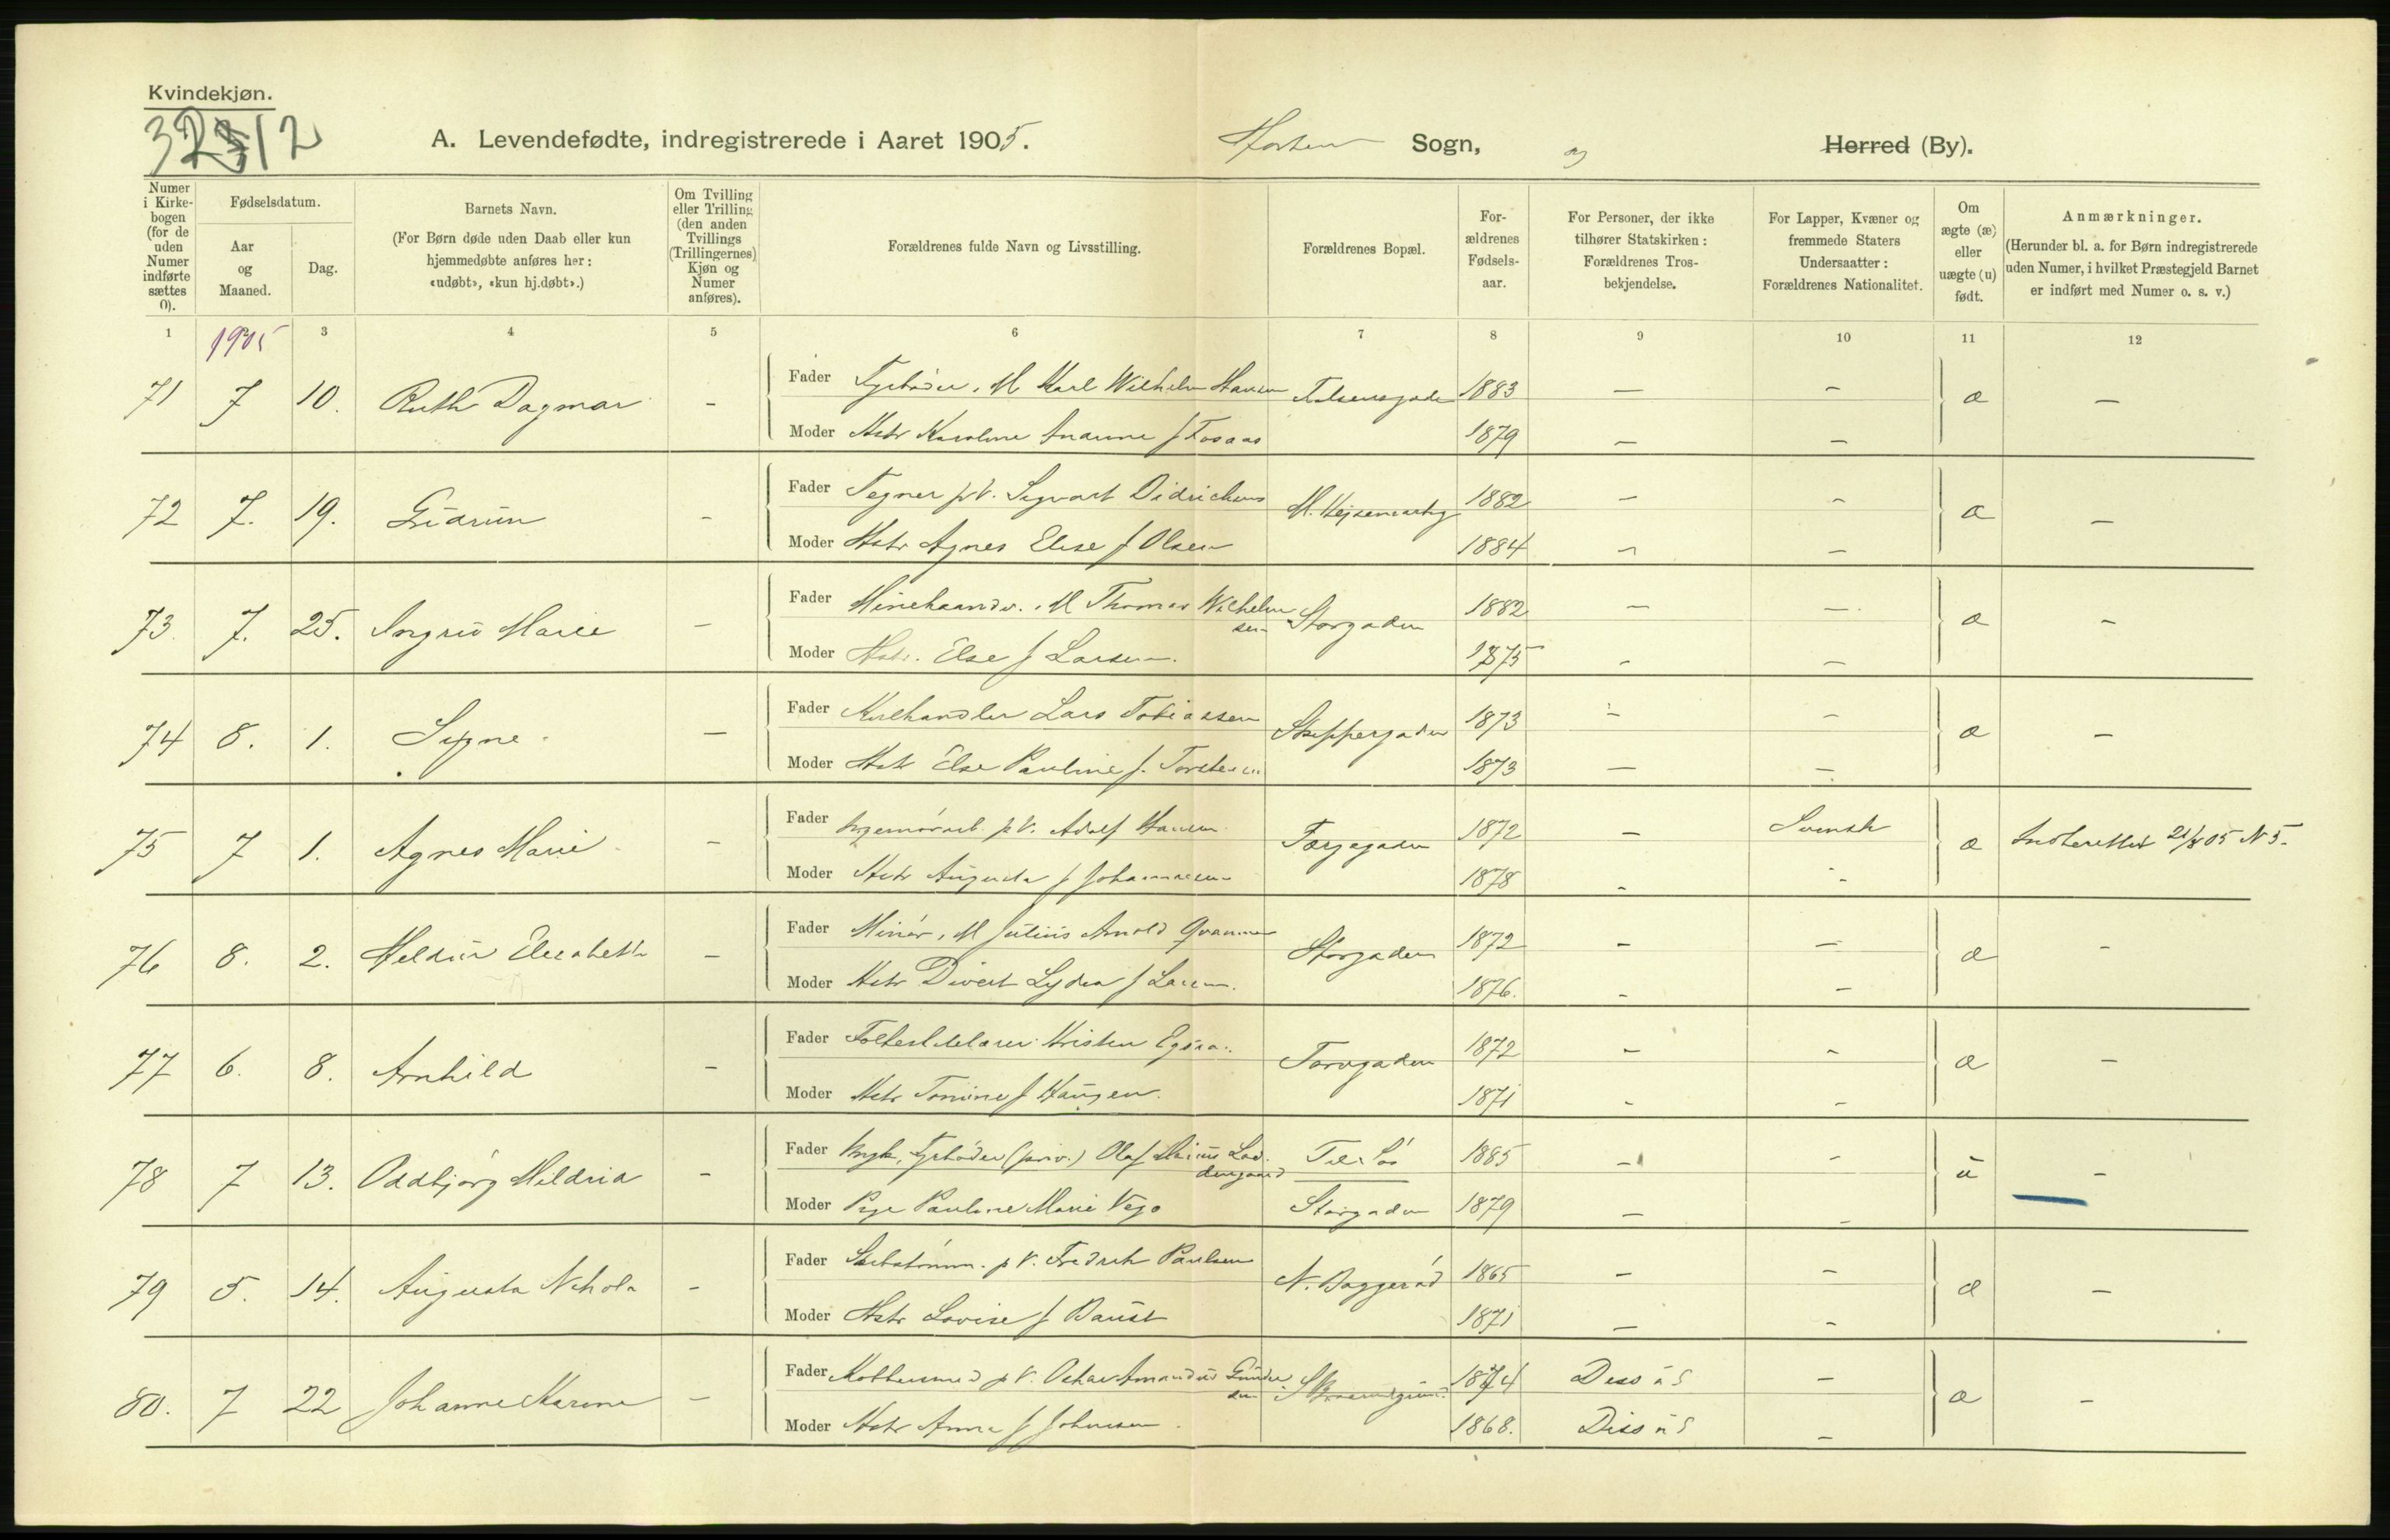 Kvindekjøn.
A. Levendefødte, indregistrerede i Aaret 1905. Horten Sogn, og Herred (By).
Numer i Kirkebogen (for de uden Numer indførte sættes 0).
Fødselsdatum.
Aar og Maaned.
Dag.
Barnets Navn.
(For Børn døde uden Daab eller kun hjemmedøbte anføres her: «udøbt», «kun hj.døbt».)
Om Tvilling eller Trilling (den anden Tvillings (Trillingernes) Kjøn og Numer anføres).
Forældrenes fulde Navn og Livsstilling.
Forældrenes Bopæl.
Forældrenes Fødselsaar.
For Personer, der ikke tilhører Statskirken: Forældrenes Trosbekjendelse.
For Lapper, Kvæner og fremmede Staters Undersaatter: Forældrenes Nationalitet.
Om ægte (æ) eller uægte (u) født.
Anmærkninger.
(Herunder bl. a. for Børn indregistrerede uden Numer, i hvilket Præstegjeld Barnet er indført med Numer o. s. v.)
1 1905 3 4 5 6 7 8 9 10 11 12
71 7 10. Ruth Dagmar - Fader Fyrbøder, M Karl Wilhelm Hansen 1883 — - æ —
Moder Hstr Karoline f 1879 — —
72 7. 19. Gudrun - Fader Tegner p V. Sigvart Didrichsen 1882 — - æ —
Moder Hstr Agnes Elise f Olsen 1884 - —
73 7. 25. Ingrid Marie — Fader Minehaandv. M Thomas Wilhelmsen Storgaden 1882 — — æ -
Moder Hstr. Else f Larsen. 1875 - —
74 8. 1. Signe - — Fader Lars Tobiassen Skippergaden 1873 - - æ —
Moder Hstr Else Pauline f. Torstensen 1873 — —
75 7 1. Agnes Marie - Fader p V. Adolf Hansen Færgegaden 1872 — Svensk æ 21/8 05 N 5.
Moder Hstr Augusta f Johannesen 1878 - -
76 8. 2. Heldur Elisabeth - Fader Minør, M Julius Arnold Storgaden 1872 - — æ -
Moder Hstr Divert Lydia f Larsen. 1876. - —
77 6. 8. Arnhild - Fader Kristen Torvgaden 1872 - - æ —
Moder Hstr Tonine f Haugen. 1871 - -
78 7 13. Oddbjørg Hildria - Fader Fyrbøder (priv.) Olaf Marius Tilsøs 1885 - - u -
Moder Pige Pauline Marie Vego Storgaden 1879 — -
79 5. 14. Augusta - Fader p V. Fredrik Paulsen N. Baggerød 1865 — - æ —
Moder Hstr Lovise f Baust 1871 — -
80. 7 22 Johanne Karine — Fader Kobbersmed p V. Oskar Amandus Gundersen 1874 Diss — æ -
Moder Hstr Anna f Johnsen. 1868. Diss —